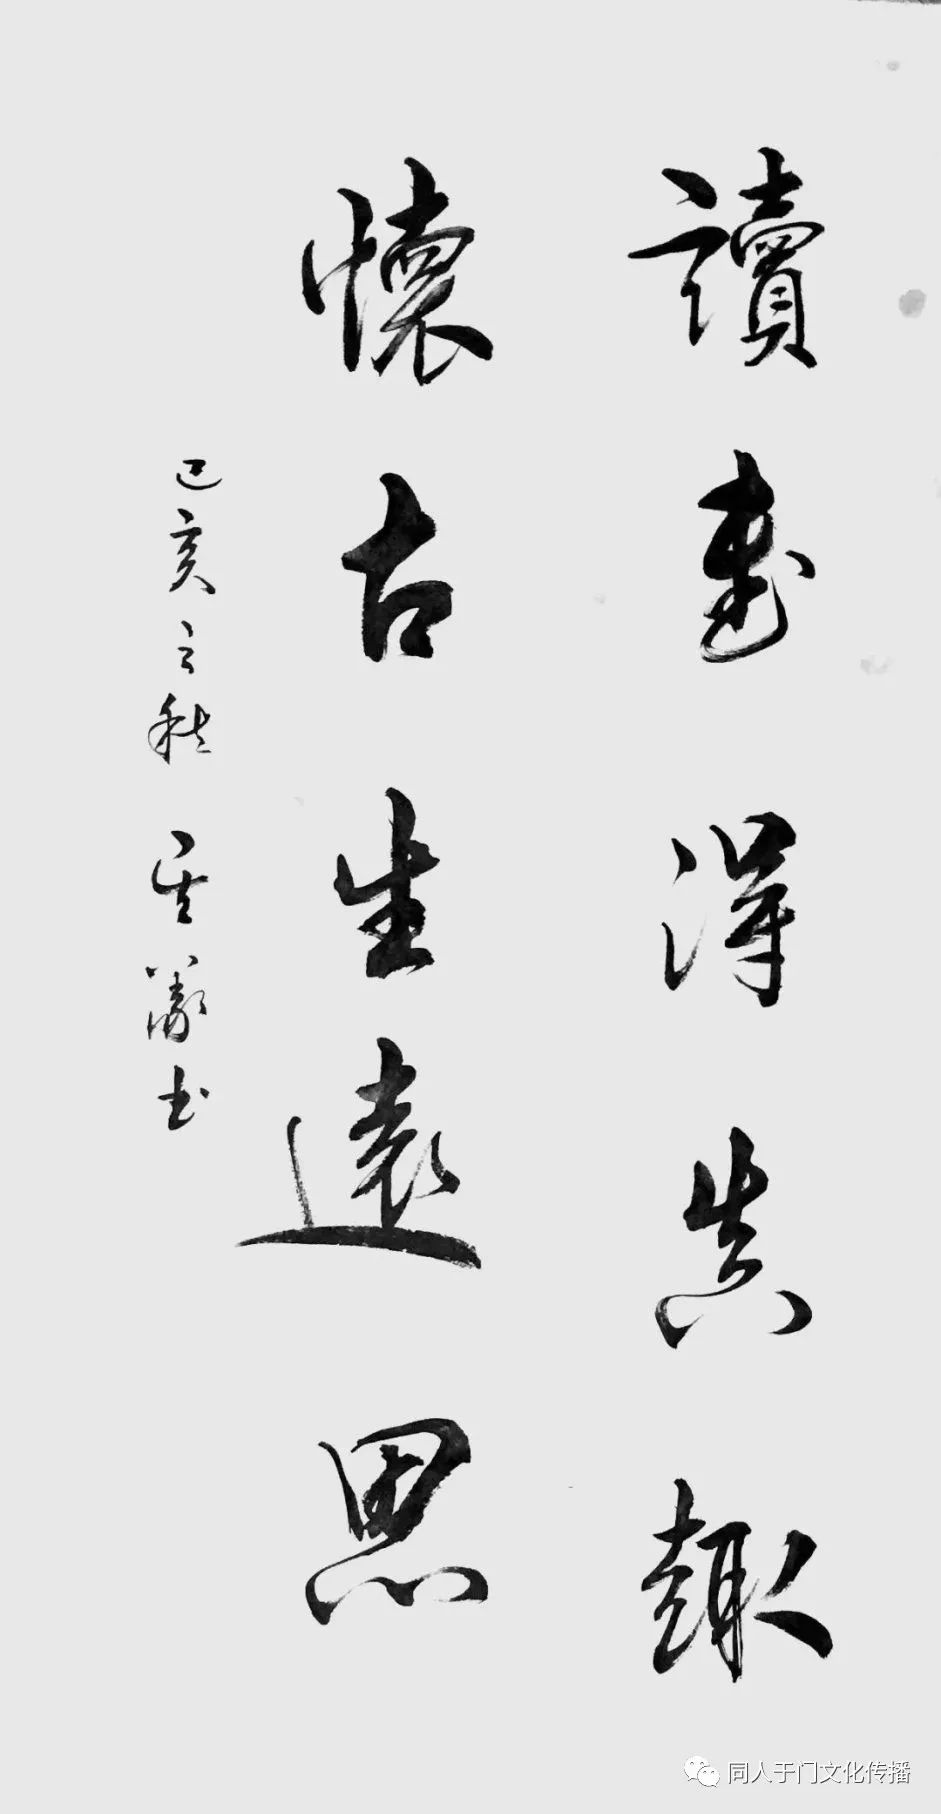 讀書得真趣
懷古生遠思
己亥之秋 書
同人于门文化传播